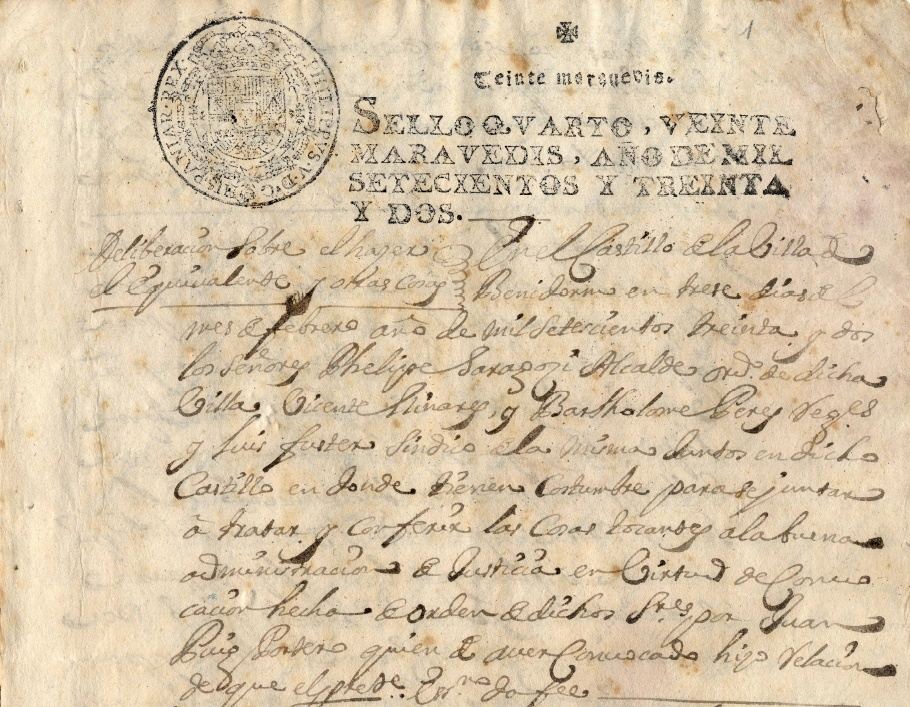 1
Veinte maravedis.
PHILIPPUS V D G HISPANIAR REX
SELLO QVARTO, VEINTE
MARAVEDIS, AÑO DE MIL
SETECIENTOS Y TREINTA
Y DOS.
Deliberacion sobre el hazer
el Equivalente y otras cosas
En el Castillo de la Villa de
Benidorm en trese dias del
mes de febrero año de mil setecientos treinta y dos
los Señores Phelipe Saragozi Alcalde ord.º de dicha
Villa, Vicente Llinares, y Bartholome Peres Reg.es
y Luis fuster sindico de la misma Juntos en dicho
Castillo en donde tienen costumbre para se juntar
à tratar y conferir las cosas tocantes a la buena
administracion de Justicia en Virtud de Convo
cacion hecha de orden de dichos s.res por Juan
Puig Portero quien de aver Convocado hizo Relacion
de que el pres.te Ess.no da fee